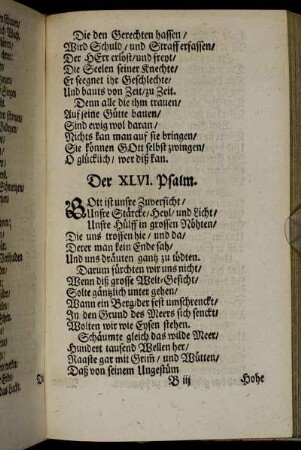 Die den Gerechten hassen/
Wird Schuld/ und Straff erfassen/
Der HErr erlöst/ und freyt/
Die Seelen seiner Knechte/
Er segnet ihr Geschlechte/
Und bauts von Zeit/ zu Zeit.
Denn alle die ihm trauen/
Auf seine Gütte bauen/
Sind ewig wol daran/
Nichts kan man auf sie bringen/
Sie können GOtt selbst zwingen/
O glücklich/ wer diß kan.
Der XLVI. Psalm.
GOtt ist unsre Zuversicht/
Unsre Stärcke/ Heyl/ und Licht/
Unsre Hülff in grossen Nöhten/
Die uns troffen hie/ und da/
Derer man kein Ende sah/
Und uns dräuten gantz zu tödten.
Darum fürchten wir uns nicht/
Wenn diß grosse Welt-Gesicht/
Solte gäntzlich unter gehen/
Wann ein Berg/ der fest umschrenckt/
In den Grund des Meers sich senckt/
Wolten wir wie Eysen stehen.
Schäumte gleich das wilde Meer/
Hundert tausend Wellen her/
Raaste gar mit Grim/ und Wütten/
Daß von seinem Ungestüm
B iij
Hohe